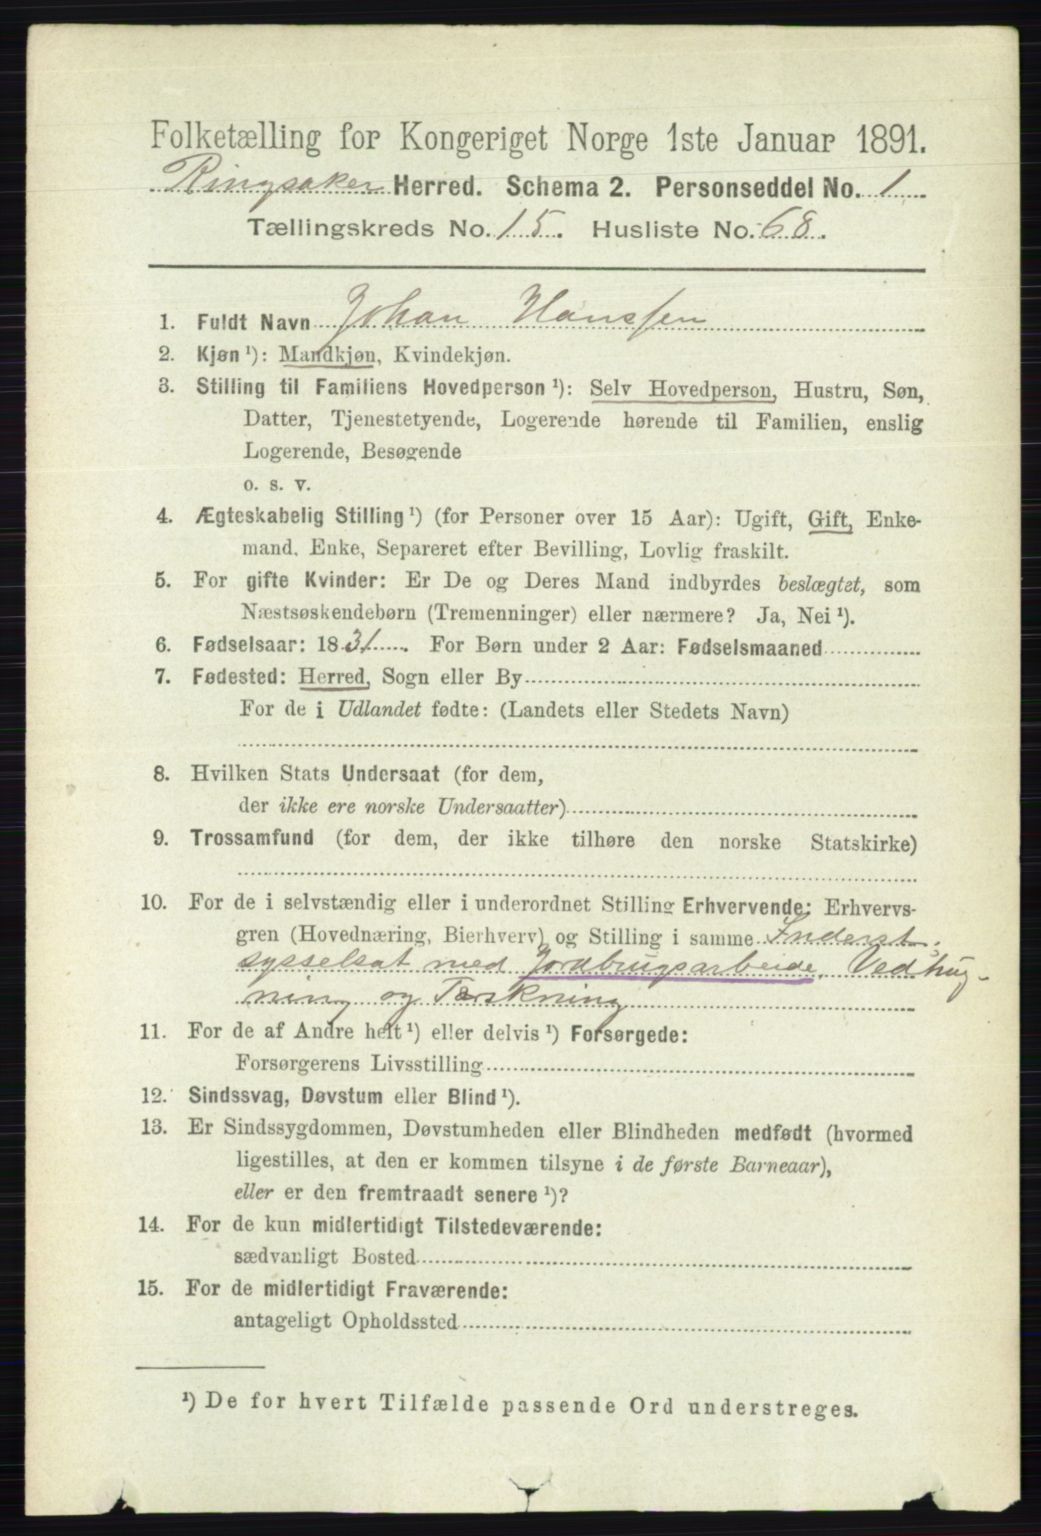 Folketælling for Kongeriget Norge 1ste Januar 1891.
Ringsaker Herred. Schema 2. Personseddel No. 1
Tællingskreds No. 15. Husliste No. 68.
1. Fuldt Navn Johan Hanssen
2. Kjøn ¹): Mandkjøn, Kvindekjøn.
3. Stilling til Familiens Hovedperson ¹): Selv Hovedperson, Hustru, Søn,
Datter, Tjenestetyende, Logerende hørende til Familien, enslig
Logerende, Besøgende
o. s. v.
4. Ægteskabelig Stilling ¹) (for Personer over 15 Aar): Ugift, Gift, Enke-
mand, Enke, Separeret efter Bevilling, Lovlig fraskilt.
5. For gifte Kvinder: Er De og Deres Mand indbyrdes beslægtet, som
Næstsøskendebørn (Tremenninger) eller nærmere? Ja, Nei ¹).
6. Fødselsaar: 1831. For Børn under 2 Aar: Fødselsmaaned
7. Fødested: Herred, Sogn eller By
For de i Udlandet fødte: (Landets eller Stedets Navn)
8. Hvilken Stats Undersaat (for dem,
der ikke ere norske Undersaatter)
9. Trossamfund (for dem, der ikke tilhøre den norske Statskirke)
10. For de i selvstændig eller i underordnet Stilling Erhvervende: Erhvervs-
gren (Hovednæring, Bierhverv) og Stilling i samme Inderst,
sysselsat med Jordbrugsarbeide, Vedhug-
ning og Tærskning
11. For de af Andre helt ¹) eller delvis ¹) Forsørgede:
Forsørgerens Livsstilling
12. Sindssvag, Døvstum eller Blind ¹).
13. Er Sindssygdommen, Døvstumheden eller Blindheden medfødt (hvormed
ligestilles, at den er kommen tilsyne i de første Barneaar),
eller er den fremtraadt senere ¹)?
14. For de kun midlertidigt Tilstedeværende:
sædvanligt Bosted
15. For de midlertidigt Fraværende:
antageligt Opholdssted
¹) De for hvert Tilfælde passende Ord understreges.